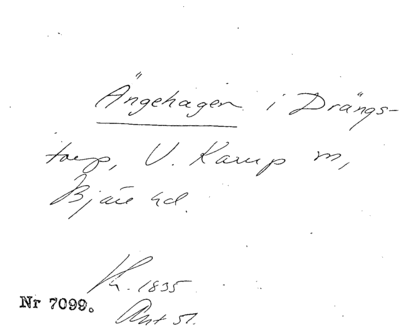 Ängehagen i Drängs-
torp, V. Karup sn,
Bjäre hd.
1835
Nr 7099. Akt 51.